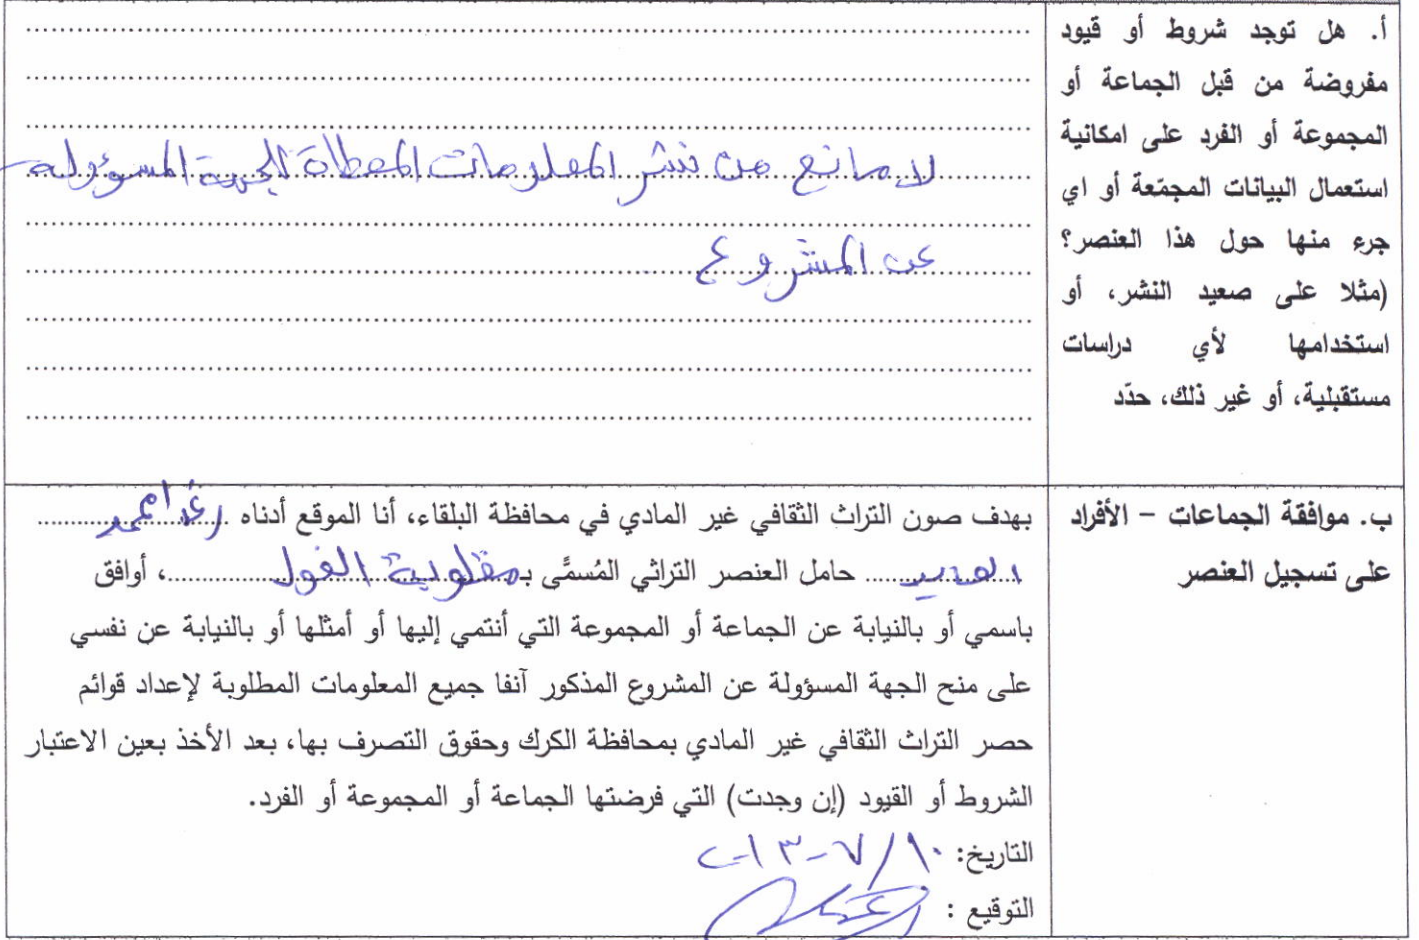 أ. هل توجد شروط أو قيود
مفروضة من قبل الجماعة أو
المجموعة أو الفرد على امكانية
استعمال البيانات المجمّعة أو اي
جرء منها حول هذا العنصر؟
(مثلا على صعيد النشر، أو
استخدامها لأي دراسات
مستقبلية، أو غير ذلك، حدّد
لا مانع من نشر المعلومات المعطاة للجهة المسؤوله
عن المشروع
ب. موافقة الجماعات - الأفراد
على تسجيل العنصر
بهدف صون التراث الثقافي غير المادي في محافظة البلقاء، أنا الموقع أدناه
حامل العنصر التراثي المُسمَّى بـ مقلوبة الفول، أوافق
باسمي أو بالنيابة عن الجماعة أو المجموعة التي أنتمي إليها أو أمثلها أو بالنيابة عن نفسي
على منح الجهة المسؤولة عن المشروع المذكور آنفا جميع المعلومات المطلوبة لإعداد قوائم
حصر التراث الثقافي غير المادي بمحافظة الكرك وحقوق التصرف بها، بعد الأخذ بعين الاعتبار
الشروط أو القيود (إن وجدت) التي فرضتها الجماعة أو المجموعة أو الفرد.
التاريخ: ١٠/٧-٢٠١٣
التوقيع :